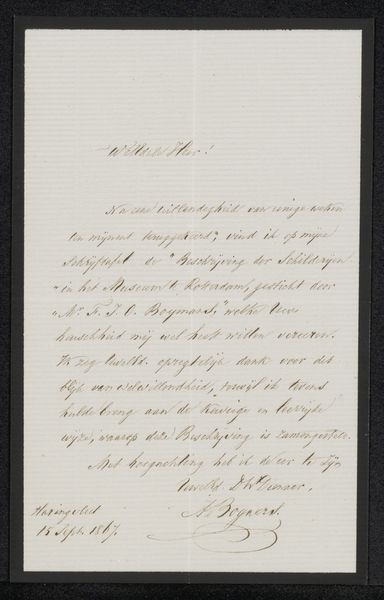 WelEdele Heer!
Na eene uitlandigheid van eenige weken
ten mijnent teruggekeerd, vind ik op mijne
Schrijftafel de "Beschrijving der Schilderijen
"in het Museum te Rotterdam, gesticht door
"Mr. F. J. O. Boymans," welke Uwe
heuschheid mij wel heeft willen vereeren.
Ik zeg UwelEd. opregtelijk dank voor dit
blijk van welwillendheid, terwijl ik tevens
hulde breng aan de keurige en
wijze, waarop deze Beschrijving is zamengesteld.
Met hoogachting heb ik de eer te zijn
UwelEd. Dw Dienaar,
A. Bogaers.
Haringvliet
15 Sept. 1867.